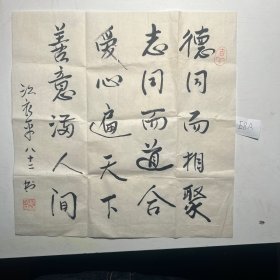 德同而相聚
志同而道合
爱心遍天下
善意满人间
八十二书